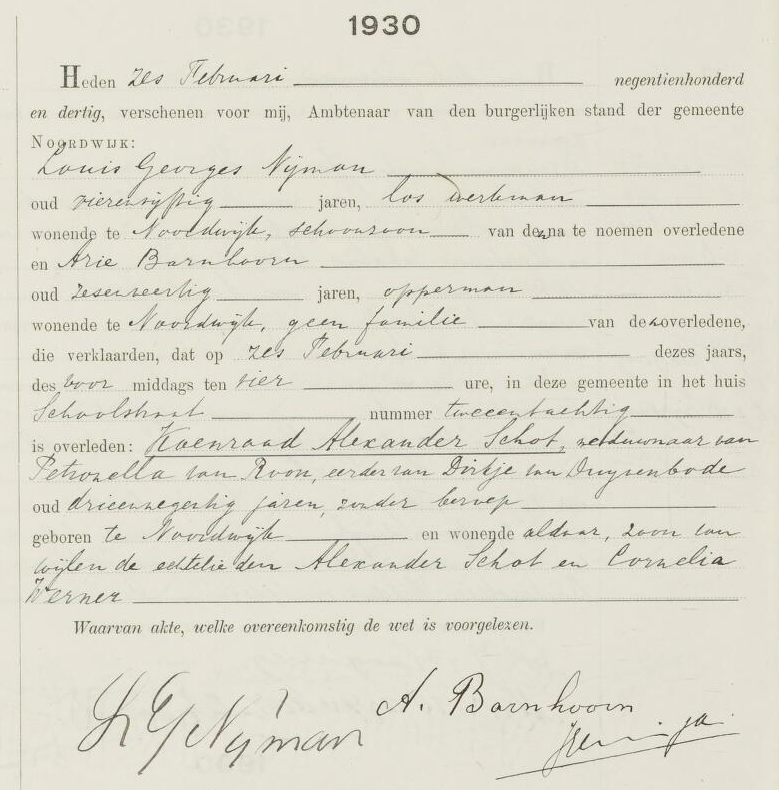 1930
Heden zes Februari negentienhonderd
en dertig, verschenen voor mij, Ambtenaar van den burgerlijken stand der gemeente
NOORDWIJK:
Louis Georges Nijman
oud vierenvijftig jaren, los werkman
wonende te Noordwijk, schoonzoon van den na te noemen overledene
en Arie Barnhoorn
oud zesenveertig jaren, opperman
wonende te Noordwijk, geen familie van de overledene,
die verklaarden, dat op zes Februari dezes jaars,
des voor middags ten vier ure, in deze gemeente in het huis
Schoolstraat nummer tweeentachtig
is overleden: Koenraad Alexander Schot, weduwnaar van
Petronella van Roon, eerder van Dirkje van Duysenbode
oud drieennegentig jaren, zonder beroep
geboren te Noordwijk en wonende aldaar, zoon van
wijlen de echtelieden Alexander Schot en Cornelia
Werner
Waarvan akte, welke overeenkomstig de wet is voorgelezen.
L G Nijman A. Barnhoorn